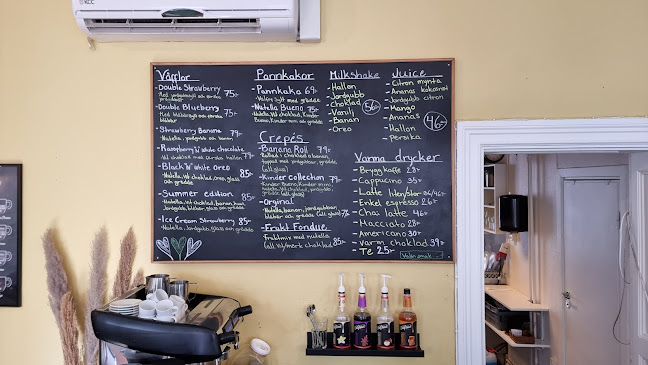 Våfflor
Double Strawberry 75:-
Med jordgubssylt och färska
jordgubbar
Double Blueberry 75:-
Med blåbärssylt och färska
blåbär
Strawberry Banana 79:-
Nutella, jordgubb och banan
Raspberry "n" White chocolate
Vit choklad och färska hallon 79:-
Black "n" White Oreo 85:-
och grädde
Summer edition 85:-
Nutella, vit choklad, banan,
jordgubbar, blåbär, glass och grädde
Ice Cream Strawberry 85:-
Nutella, Jordgubb, glass och grädde
Pannkakor
Pannkaka 69:-
Valfri sylt med grädde
Nutella Bueno 79:-
Nutella, vit choklad, Kinder
Bueno, Kinder mini och grädde
Crepés
Banana Roll 79:-
Rullad i choklad o banan,
toppad med jordgubbar, grädde
(all glass)
Kinder collection 79:-
Kinder Bueno, Kinder mini
Orginal
Nutella, banan, jordgubbar
blåbär och grädde (all glass) 79:-
Frukt Fondue
Fruktmix med nutella
(all vit/mörk choklad) 85:-
Milkshake
Hallon
Jordgubb
Choklad
Vanilj
Banan
Oreo
56:-
Juice
Citron mynta
Ananas kokosnöt
Jordgubb citron
Mango
Ananas
Hallon
Persika
46:-
Varma drycker
Brygg Kaffe 28:-
Cappucino 35:-
Latte liten/stor 36/46:-
Enkel espresso 26:-
Chai latte 46:-
Macciato 28:-
Americano 30:-
Varm choklad 39:-
Te 25:-
Valfri smak